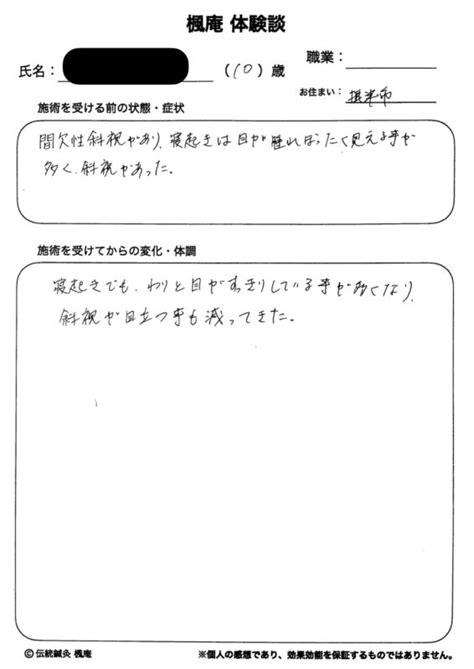 楓庵 体験談
氏名： （10）歳 職業：
お住まい： 摂津市
施術を受ける前の状態・症状
間欠性斜視があり、寝起きは目が腫れぼったく見える事が
多く、斜視があった。
施術を受けてからの変化・体調
寝起きでも、わりと目がすっきりしている事が多くなり、
斜視が目立つ事も減ってきた。
© 伝統鍼灸 楓庵 ※個人の感想であり、効果効能を保証するものではありません。